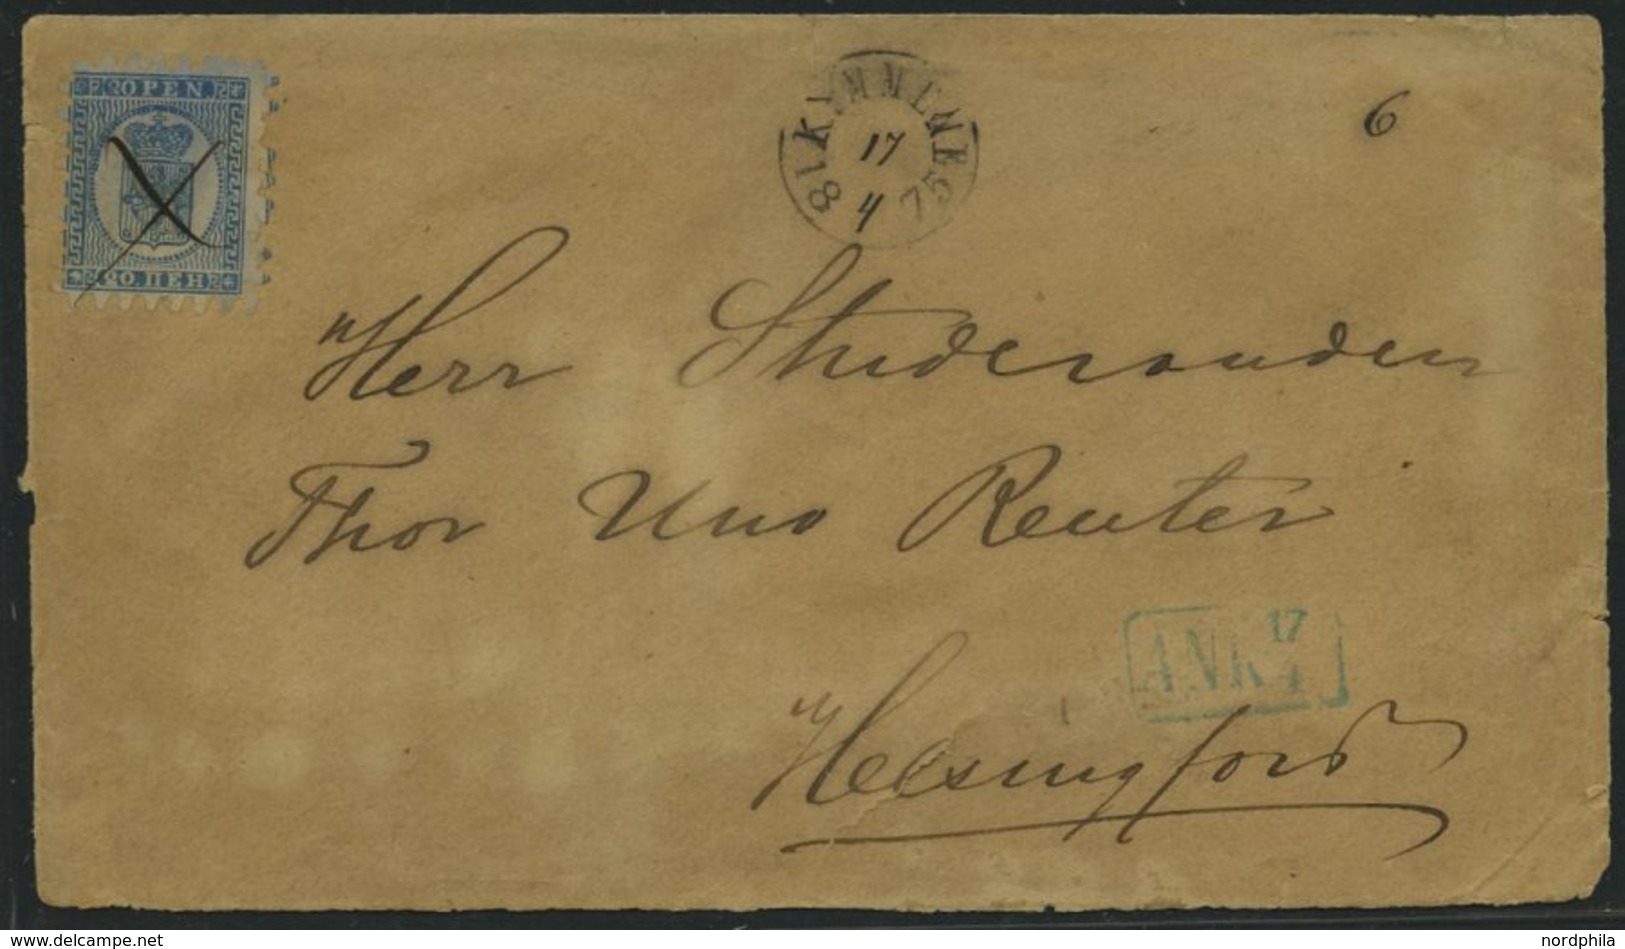 20 PEN.
20. ПЕН
KYMMENE
17
4
18 75
6
Herr Studeranden
Thor Uno Reuter
ANK 17
4
Helsingfors
delcampe.net
nordphila